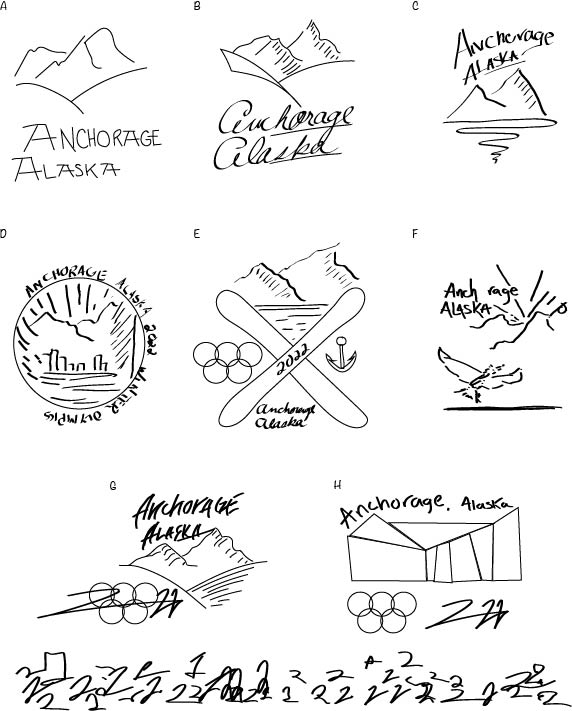 A
B
C
ANCHORAGE
ALASKA
Anchorage
Alaska
Anchorage
ALASKA
D
E
F
ANCHORAGE ALASKA 2022 WINTER OLYMPICS
2022
Anchorage
Alaska
Anch rage
ALASKA
G
H
AnchorAGE
ALASKA
Anchorage, Alaska